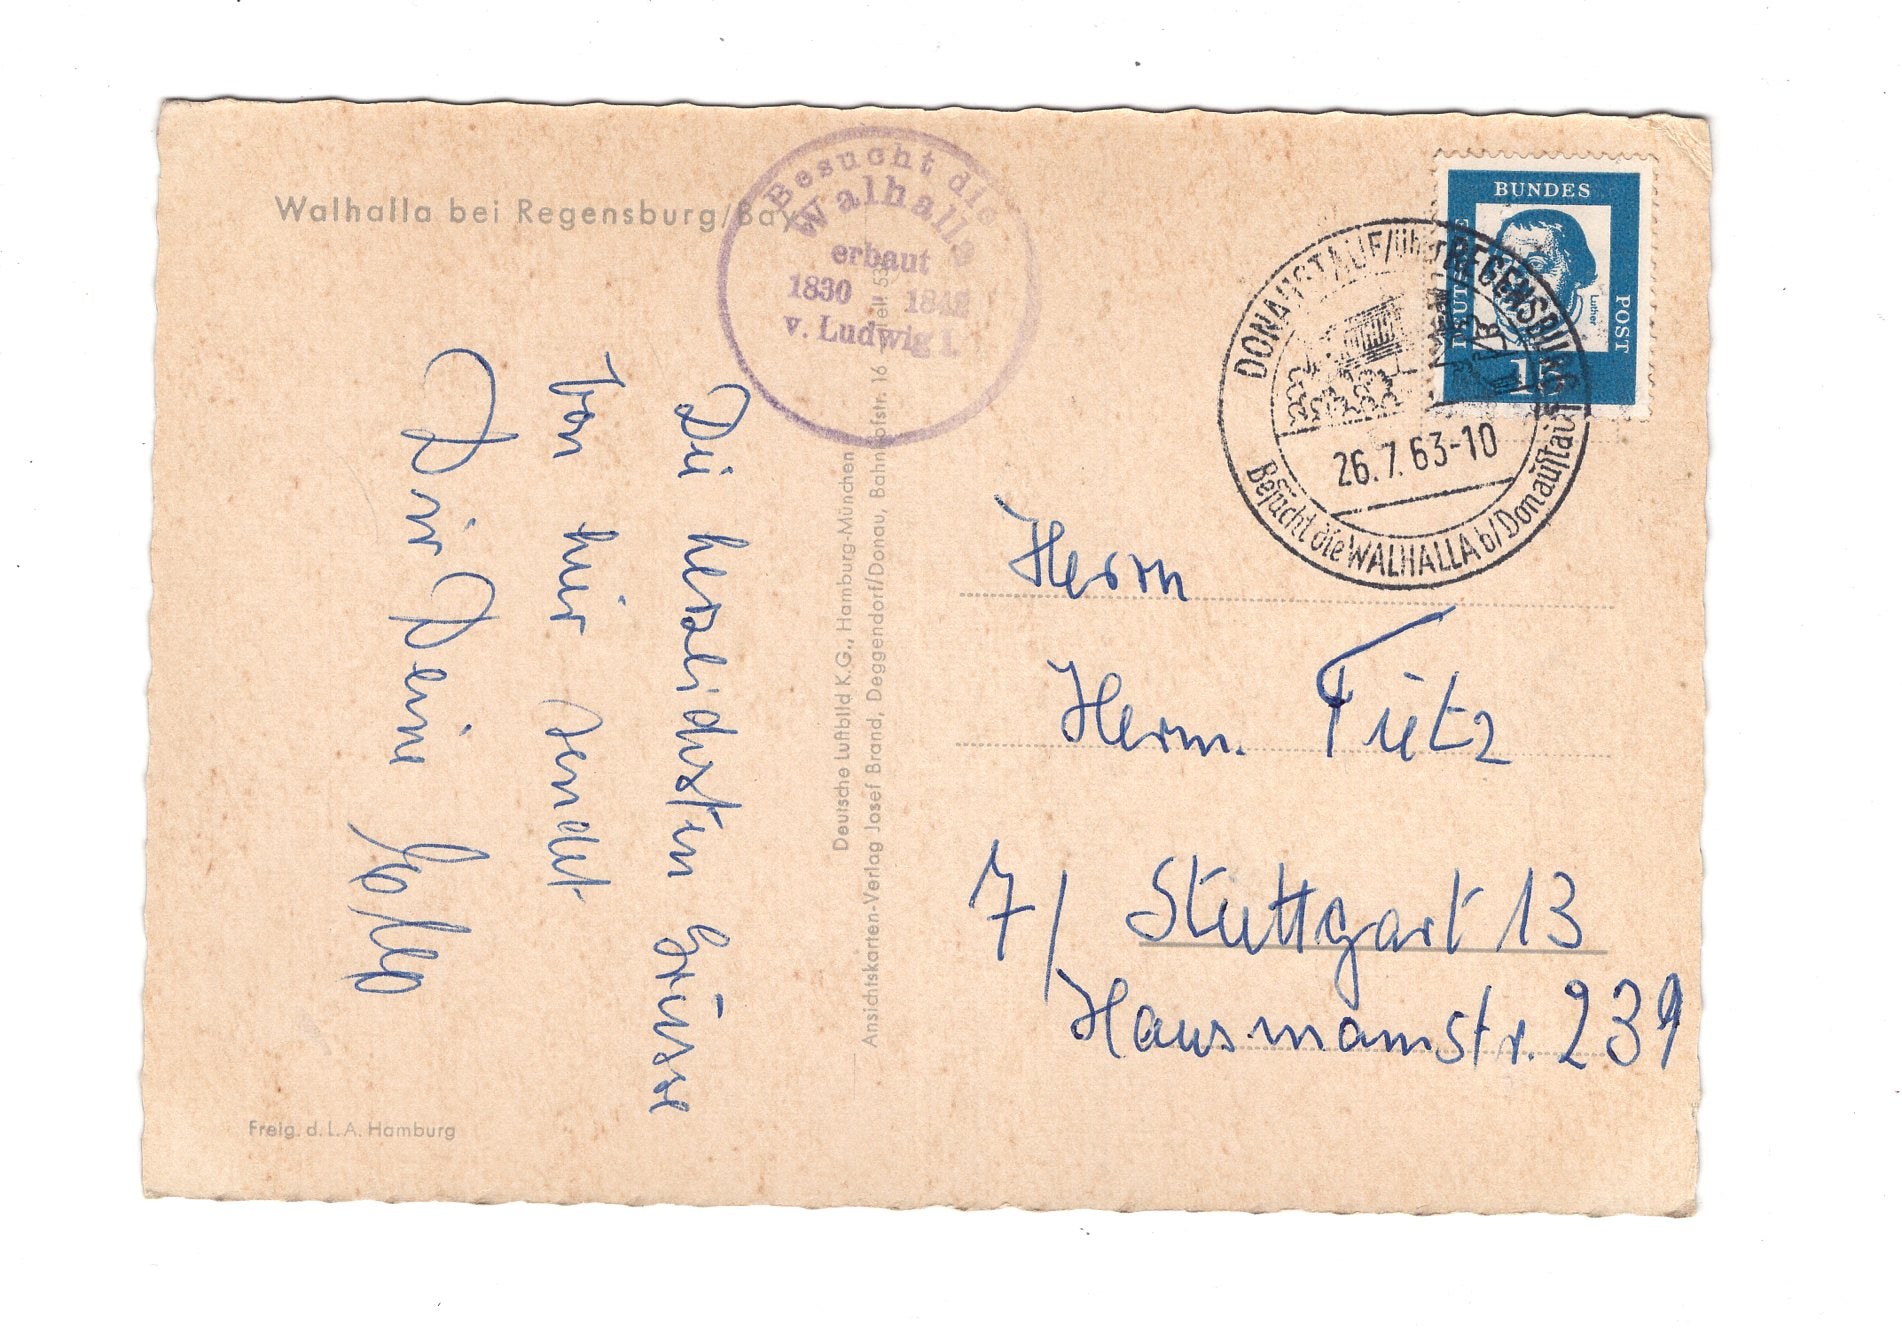 Walhalla bei Regensburg/Bay.
Besucht die
Walhalla
erbaut
1830 1842
v. Ludwig I.
DEUTSCHE
BUNDES
POST
Luther
15
DONAUSTAUF/über REGENSBURG
26.7.63-10
Besucht die WALHALLA b/Donaustauf
Die herzlichsten Grüsse
von hier sendet
Dir Deine
Deutsche Luftbild K.G., Hamburg-München
Ansichtskarten-Verlag Josef Brand, Deggendorf/Donau, Bahnhofstr. 16
Herrn
Herm. Tietz
7/ Stuttgart 13
Hausmannstr. 239
Freig. d. L. A. Hamburg